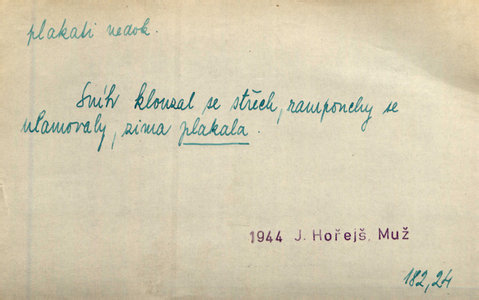 plakati nedok.
Sníh klouzal se střech, rampouchy se
ulamovaly, zima plakala.
1944 J. Hořejš, Muž
182,24